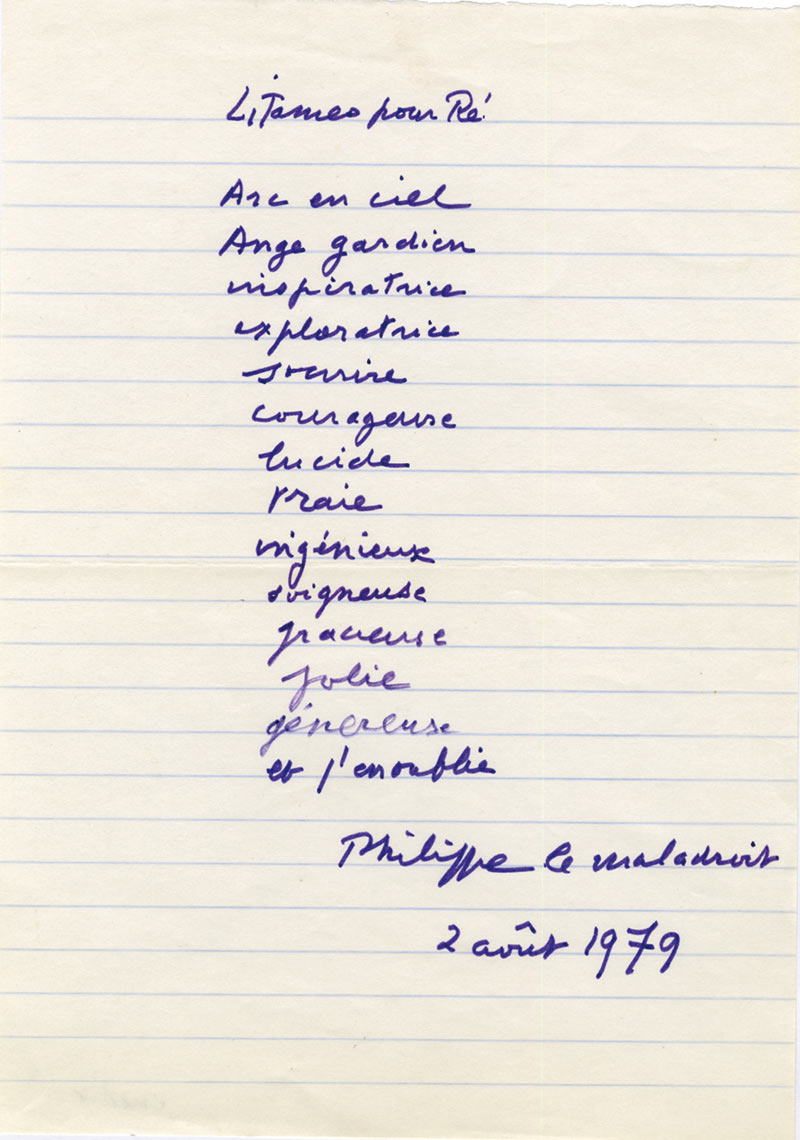 Litanies pour Ré
Arc en ciel
Ange gardien
inspiratrice
exploratrice
sourire
courageuse
lucide
vraie
ingénieux
soigneuse
gracieuse
jolie
génereuse
et j'en oublie
Philippe le maladroit
2 août 1979